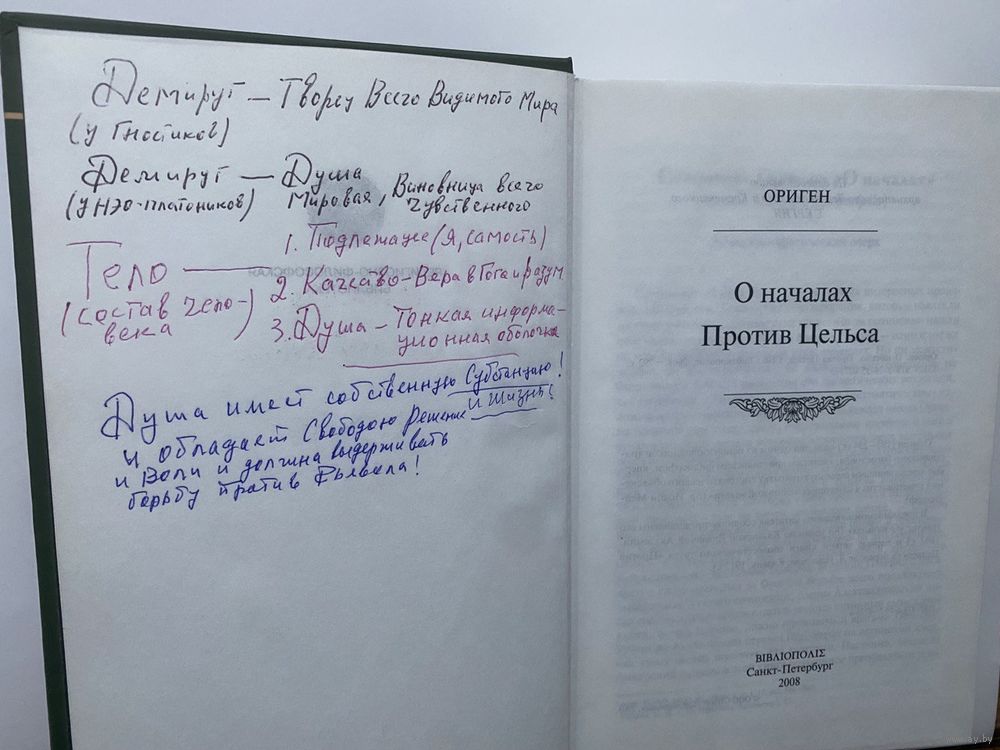 Демиург – Творец Всего Видимого Мира
(у Гностиков)
Демиург – Душа
(у НЭО-платоников) Мировая, Виновница всего
Чувственного
Тело — 1. Подлежащее (Я, самость)
(состав чело- 2. Качество – Вера в Бога и разум
века) 3. Душа – Тонкая информа-
ционная оболочка
Душа имеет собственную Субстанцию!
и обладает Свободою Решение и Жизнь!
и Воли и должна выдерживать
борьбу против Дьявола!
ОРИГЕН
О началах
Против Цельса
ΒΙΒΛΙΟΠΟΛΙΣ
Санкт-Петербург
2008
www.ay.by